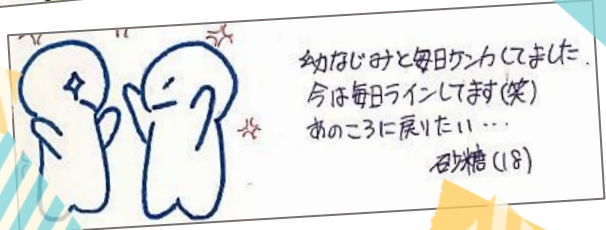 幼なじみと毎日ケンカしてました.
今は毎日ラインしてます(笑)
あのころに戻りたい…
砂糖(18)